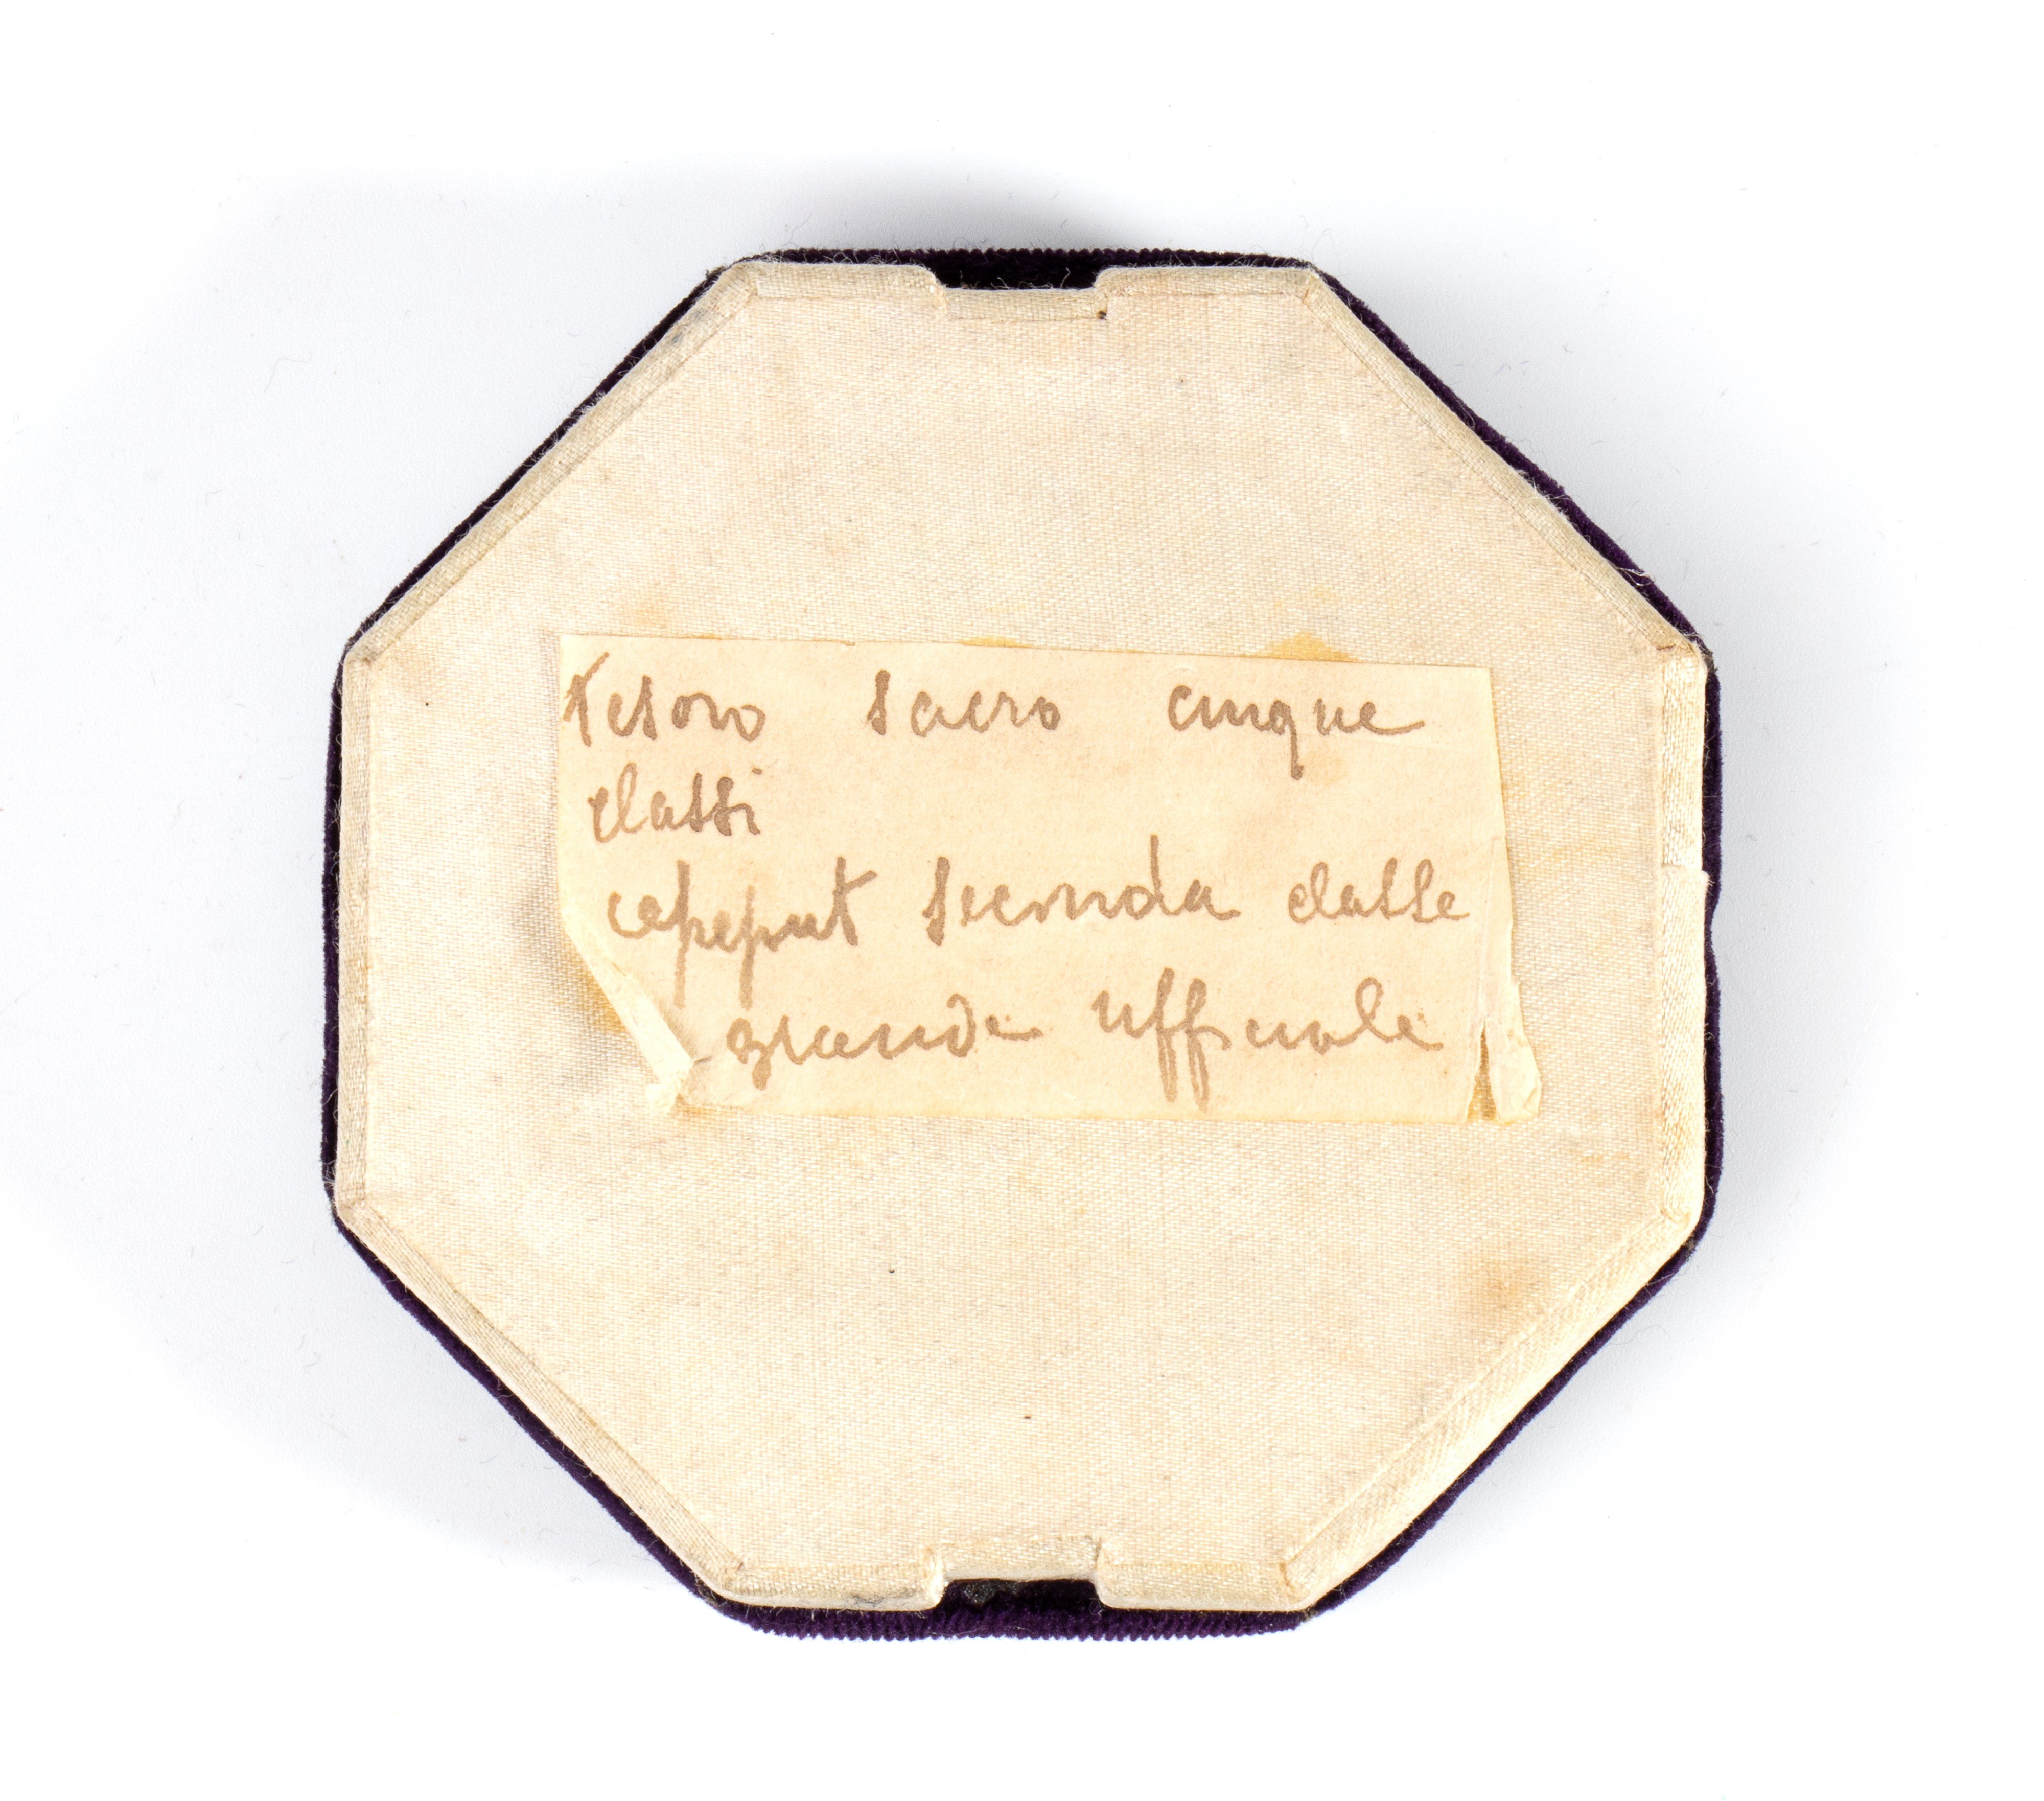 Tesoro sacro cinque
classi
seconda classe
grande ufficiale